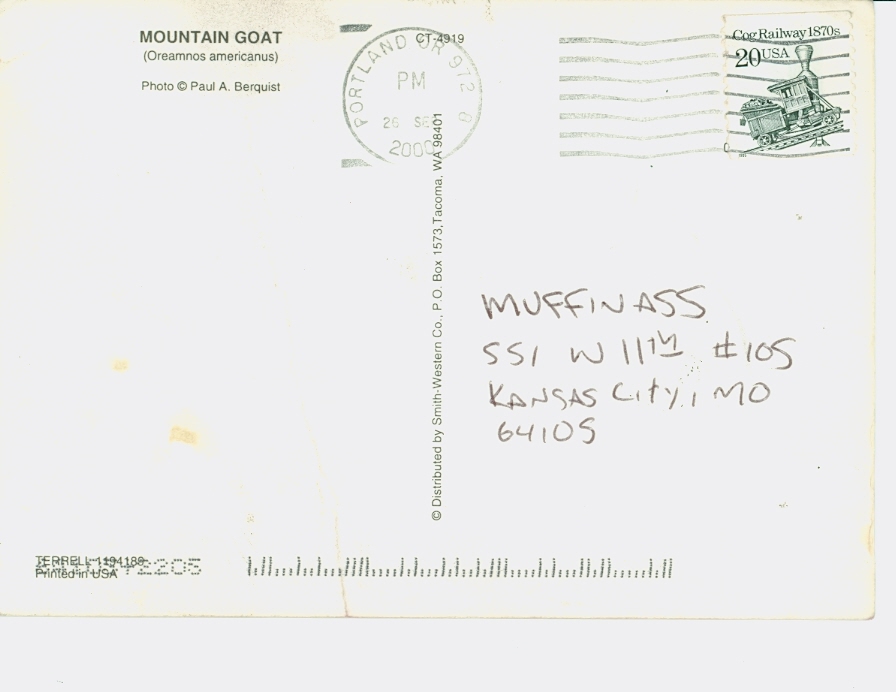 MOUNTAIN GOAT
(Oreamnos americanus)
Photo © Paul A. Berquist
CT-4919
PORTLAND OR 972
PM
26 SE
2000
Cog Railway 1870s
20 USA
© Distributed by Smith-Western Co., P.O. Box 1573, Tacoma, WA 98401
MUFFINASS
551 W 11TH #105
KANSAS CITY, MO
64105
TERRELL 1194189
Printed in USA